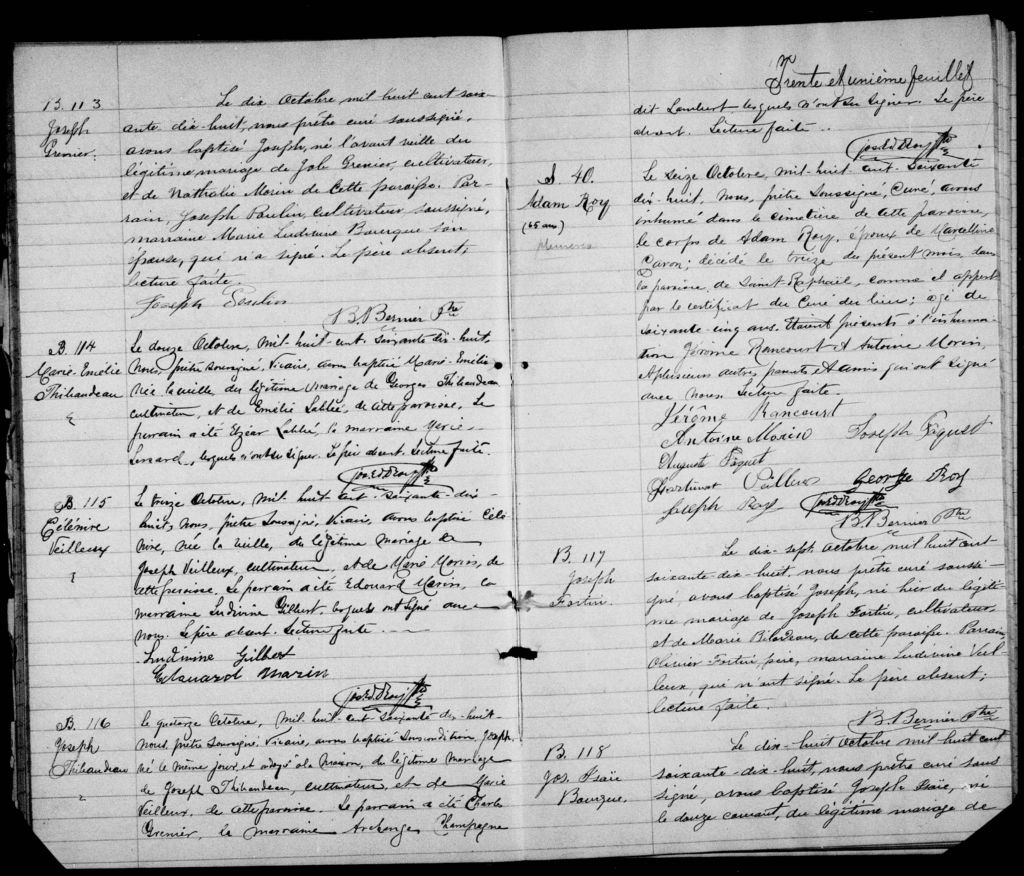 B. 113
Joseph
Grenier.
Le dix Octobre mil huit cent soix-
ante dix-huit, nous prêtre curé soussigné,
avons baptisé Joseph, né l'avant veille du
légitime mariage de Job Grenier cultivateur,
et de Nathalie Morin de cette paroisse. Par-
rain, Joseph Poulin, cultivateur, soussigné,
marraine Marie Ludivine Bourque son
épouse, qui n'a signé. Le père absent,
lecture faite.
Joseph Poulin
B. Bernier Ptre
B. 114
Marie-Emélie
Thibaudeau
Le douze Octobre, mil-huit-cent-soixante dix-huit,
Nous, prêtre soussigné, Vicaire, avons baptisé Marie-Emélie
née la veille, du légitime mariage de Georges Thibaudeau
cultivateur, et de Emélie Labbé, de cette paroisse. Le
parrain a été Elzéar Labbé, la marraine Marie
Lessard, lesquels n'ont su signer. Le père absent. Lecture faite.
Jos. Ed. Roy Ptre
B. 115
Célénire
Veilleux
Le treize Octobre, mil huit cent-soixante-dix-
huit, nous, prêtre soussigné, Vicaire, avons baptisé Célé-
nire, née la veille, du légitime mariage de
Joseph Veilleux, cultivateur, et de Marie Morin, de
cette paroisse. Le parrain a été Edouard Morin, la
marraine Ludivine Gilbert lesquels ont signé avec
nous. Le père absent. Lecture faite.
Ludivine Gilbert
Edouard Morin
Jos. Ed. Roy Ptre
B. 116
Joseph
Thibaudeau
Le quatorze Octobre, mil-huit-cent-soixante-dix-huit-
Nous, prêtre soussigné, Vicaire, avons baptisé sous condition, Joseph
né le même jour et ondoyé à la maison, du légitime mariage
de Joseph Thibaudeau, cultivateur, et de Marie
Veilleux, de cette paroisse. Le parrain a été Charles
Grenier, la marraine Archange Champagne
Trente et unième feuillet
dit Lambert lesquels n'ont su signer. Le père
absent. Lecture faite..
Jos. Ed. Roy Ptre
S. 40.
Adam Roy
(65 ans)
Le seize Octobre, mil-huit-cent-soixante
dix-huit, Nous, prêtre soussigné, Curé, avons
inhumé dans le cimetière de cette paroisse,
le corps de Adam Roy, époux de Marcelline
Caron; décédé le treize du présent mois, dans
la paroisse de Saint-Raphaël, comme il appert
par le certificat du Curé du lieu; agé de
soixante-cinq ans. Etaient présents à l'inhuma-
tion Jérôme Rancourt et Antoine Morin,
et plusieurs autres parents et amis qui ont signé
avec nous. Lecture faite.
Jérôme Rancourt
Antoine Morin Joseph Paquet
Auguste Paquet
George Roy
Joseph Roy Jos. Ed. Roy Ptre
B. Bernier Ptre
B. 117
Joseph
Fortin.
Le dix-sept Octobre mil huit cent
soixante-dix-huit, nous prêtre curé soussi-
gné, avons baptisé Joseph, né hier du légiti-
me mariage de Joseph Fortin, cultivateur,
et de Marie Bilodeau, de cette paroisse. Parrain,
Olivier Fortin, père, marraine Ludivine Veil-
leux, qui n'ont signé. Le père absent;
lecture faite.
B. Bernier Ptre
B. 118
Jos. Isaïe
Bourque.
Le dix-huit Octobre mil huit cent
soixante-dix-huit, nous prêtre curé sous
signé, avons baptisé Joseph Isaïe, né
le douze courant, du légitime mariage de